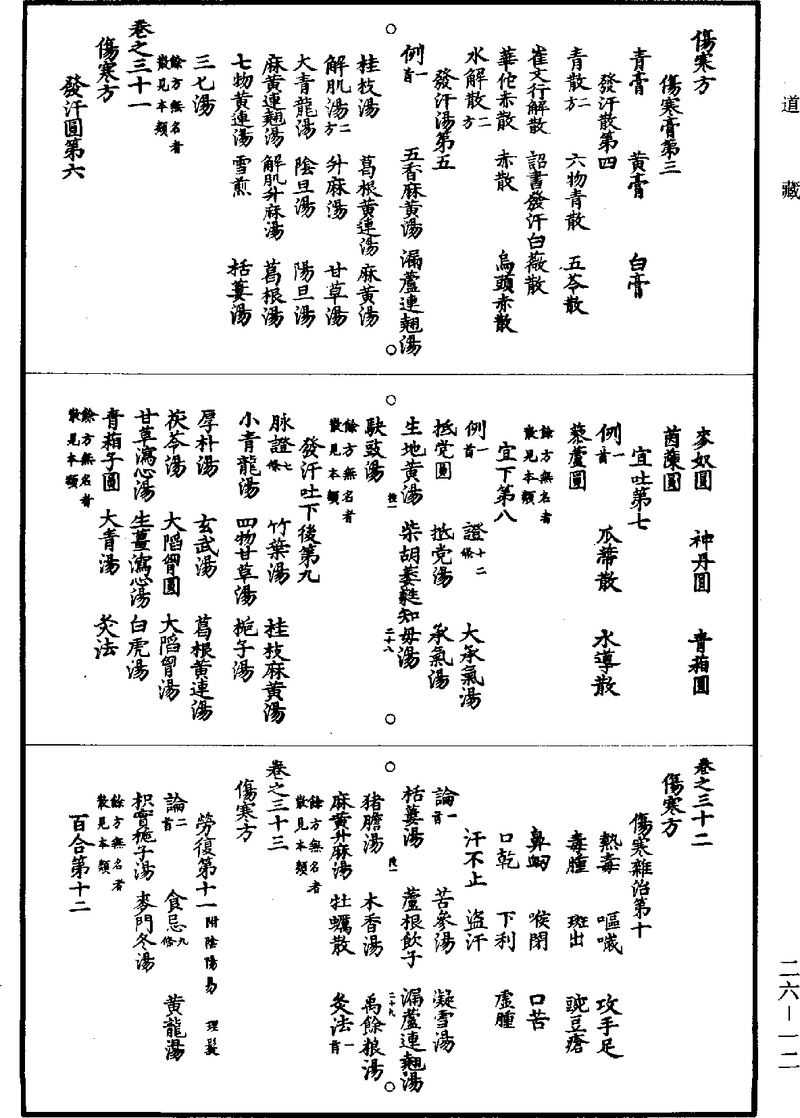 道藏
傷寒方
傷寒膏第三
青膏 黃膏 白膏
發汗散第四
青散二方 六物青散 五苓散
崔文行解散 詔書發汗白薇散
華佗赤散 赤散 烏頭赤散
水解散二方
發汗湯第五
例一首 五香麻黃湯 漏蘆連翹湯
桂枝湯 葛根黃連湯 麻黃湯
解肌湯二方 升麻湯 甘草湯
大青龍湯 陰旦湯 陽旦湯
麻黃連翹湯 解肌升麻湯 葛根湯
七物黃連湯 雪煎 栝蔞湯
三七湯
餘方無名者
散見本類
卷之三十一
傷寒方
發汗圓第六
麥奴圓 神丹圓 青葙圓
茵蔯圓
宜吐第七
例一首 瓜蒂散 水導散
藜蘆圓
餘方無名者
散見本類
宜下第八
例一首 證十二條 大承氣湯
抵党圓 抵党湯 承氣湯
生地黃湯 柴胡萎蕤知母湯
駃豉湯
餘方無名者
散見本類
發汗吐下後第九
脉證七條 竹葉湯 桂枝麻黃湯
小青龍湯 四物甘草湯 梔子湯
厚朴湯 玄武湯 葛根黃連湯
茯苓湯 大陷胷圓 大陷胷湯
甘草瀉心湯 生薑瀉心湯 白虎湯
青葙子圓 大青湯 灸法
餘方無名者
散見本類
卷之三十二
傷寒方
傷寒雜治第十
熱毒 嘔噦 攻手足
毒腫 斑出 豌豆瘡
鼻衂 喉閉 口苦
口乾 下利 虛腫
汗不止 盜汗
論一首 苦參湯 凝雪湯
栝蔞湯 蘆根飲子 漏蘆連翹湯
猪膽湯 木香湯 禹餘粮湯
麻黃升麻湯 牡蠣散 灸法一首
餘方無名者
散見本類
卷之三十三
傷寒方
勞復第十一附陰陽易 理髮
論二首 食忌九條 黃龍湯
枳實梔子湯 麥門冬湯
餘方無名者
散見本類
百合第十二
二六－一二